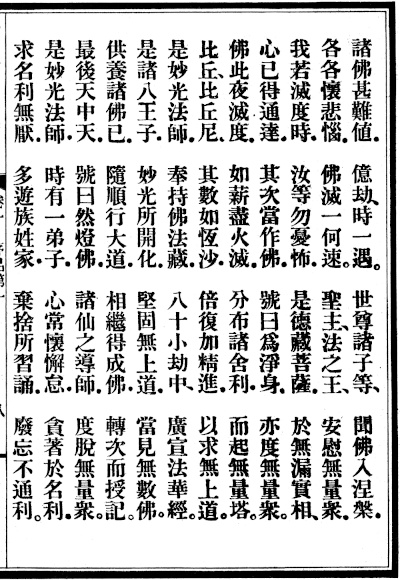 諸佛甚難值．億劫、時一遇。世尊諸子等、聞佛入涅槃．
各各懷悲惱．佛滅一何速．聖主法之王、安慰無量衆．
我若滅度時．汝等勿憂怖．是德藏菩薩．於無漏實相、
心已得通達．其次當作佛．號曰爲淨身．亦度無量衆。
佛此夜滅度．如薪盡火滅．分布諸舍利．而起無量塔。
比丘、比丘尼、其數如恆沙．倍復加精進．以求無上道．
是妙光法師．奉持佛法藏．八十小劫中、廣宣法華經．
是諸八王子．妙光所開化．堅固無上道．當見無數佛。
供養諸佛已．隨順行大道．相繼得成佛．轉次而授記。
最後天中天．號曰然燈佛．諸仙之導師．度脫無量衆。
是妙光法師．時有一弟子．心常懷懈怠．貪著於名利．
求名利無厭．多遊族姓家．棄捨所習誦．廢忘不通利。